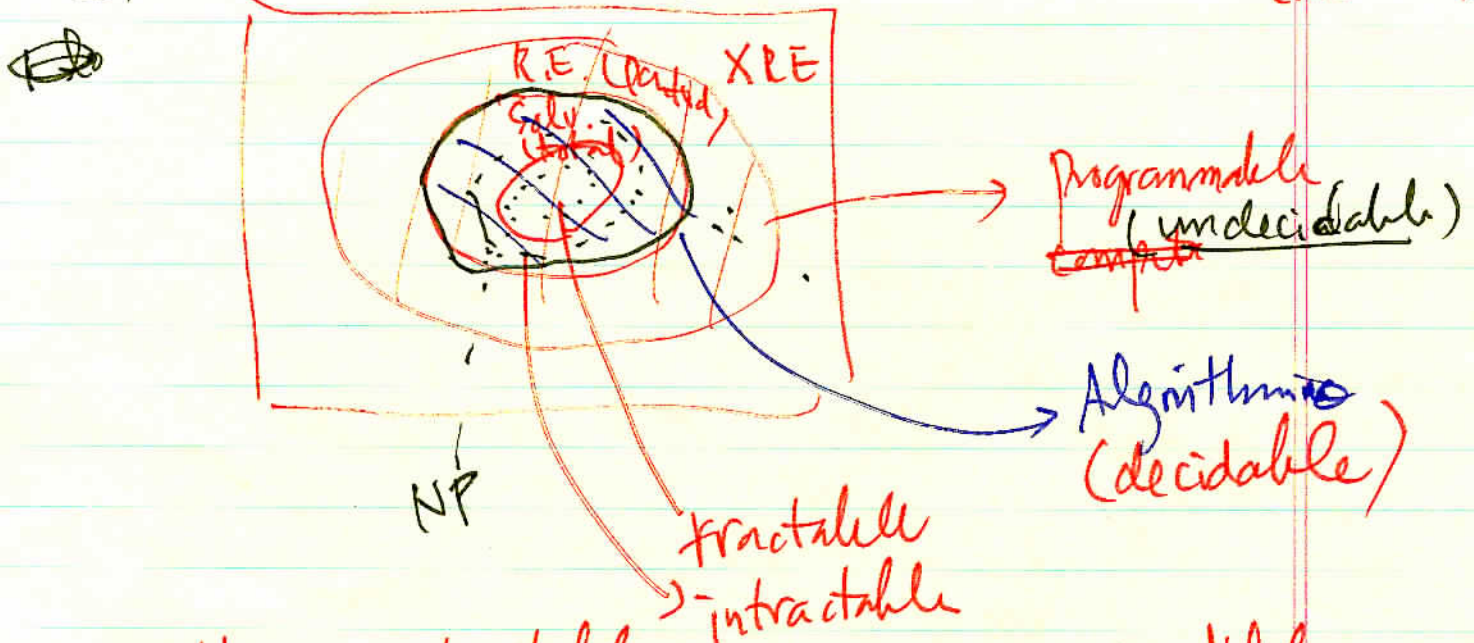 R.E. (partial) XRE
Solv.
(total)
Programmable
(undecidable)
Algorithmic
(decidable)
NP
tractable
intractable